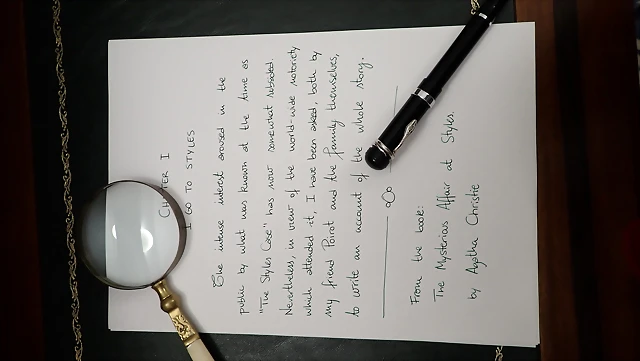 CHAPTER I
I GO TO STYLES
The intense interest aroused in the
public by what was known at the time as
"The Styles Case" has now somewhat subsided.
Nevertheless, in view of the world-wide notoriety
which attended it, I have been asked, both by
my friend Poirot and the family themselves,
to write an account of the whole story.
From the book:
The Mysterious Affair at Styles.
by Agatha Christie